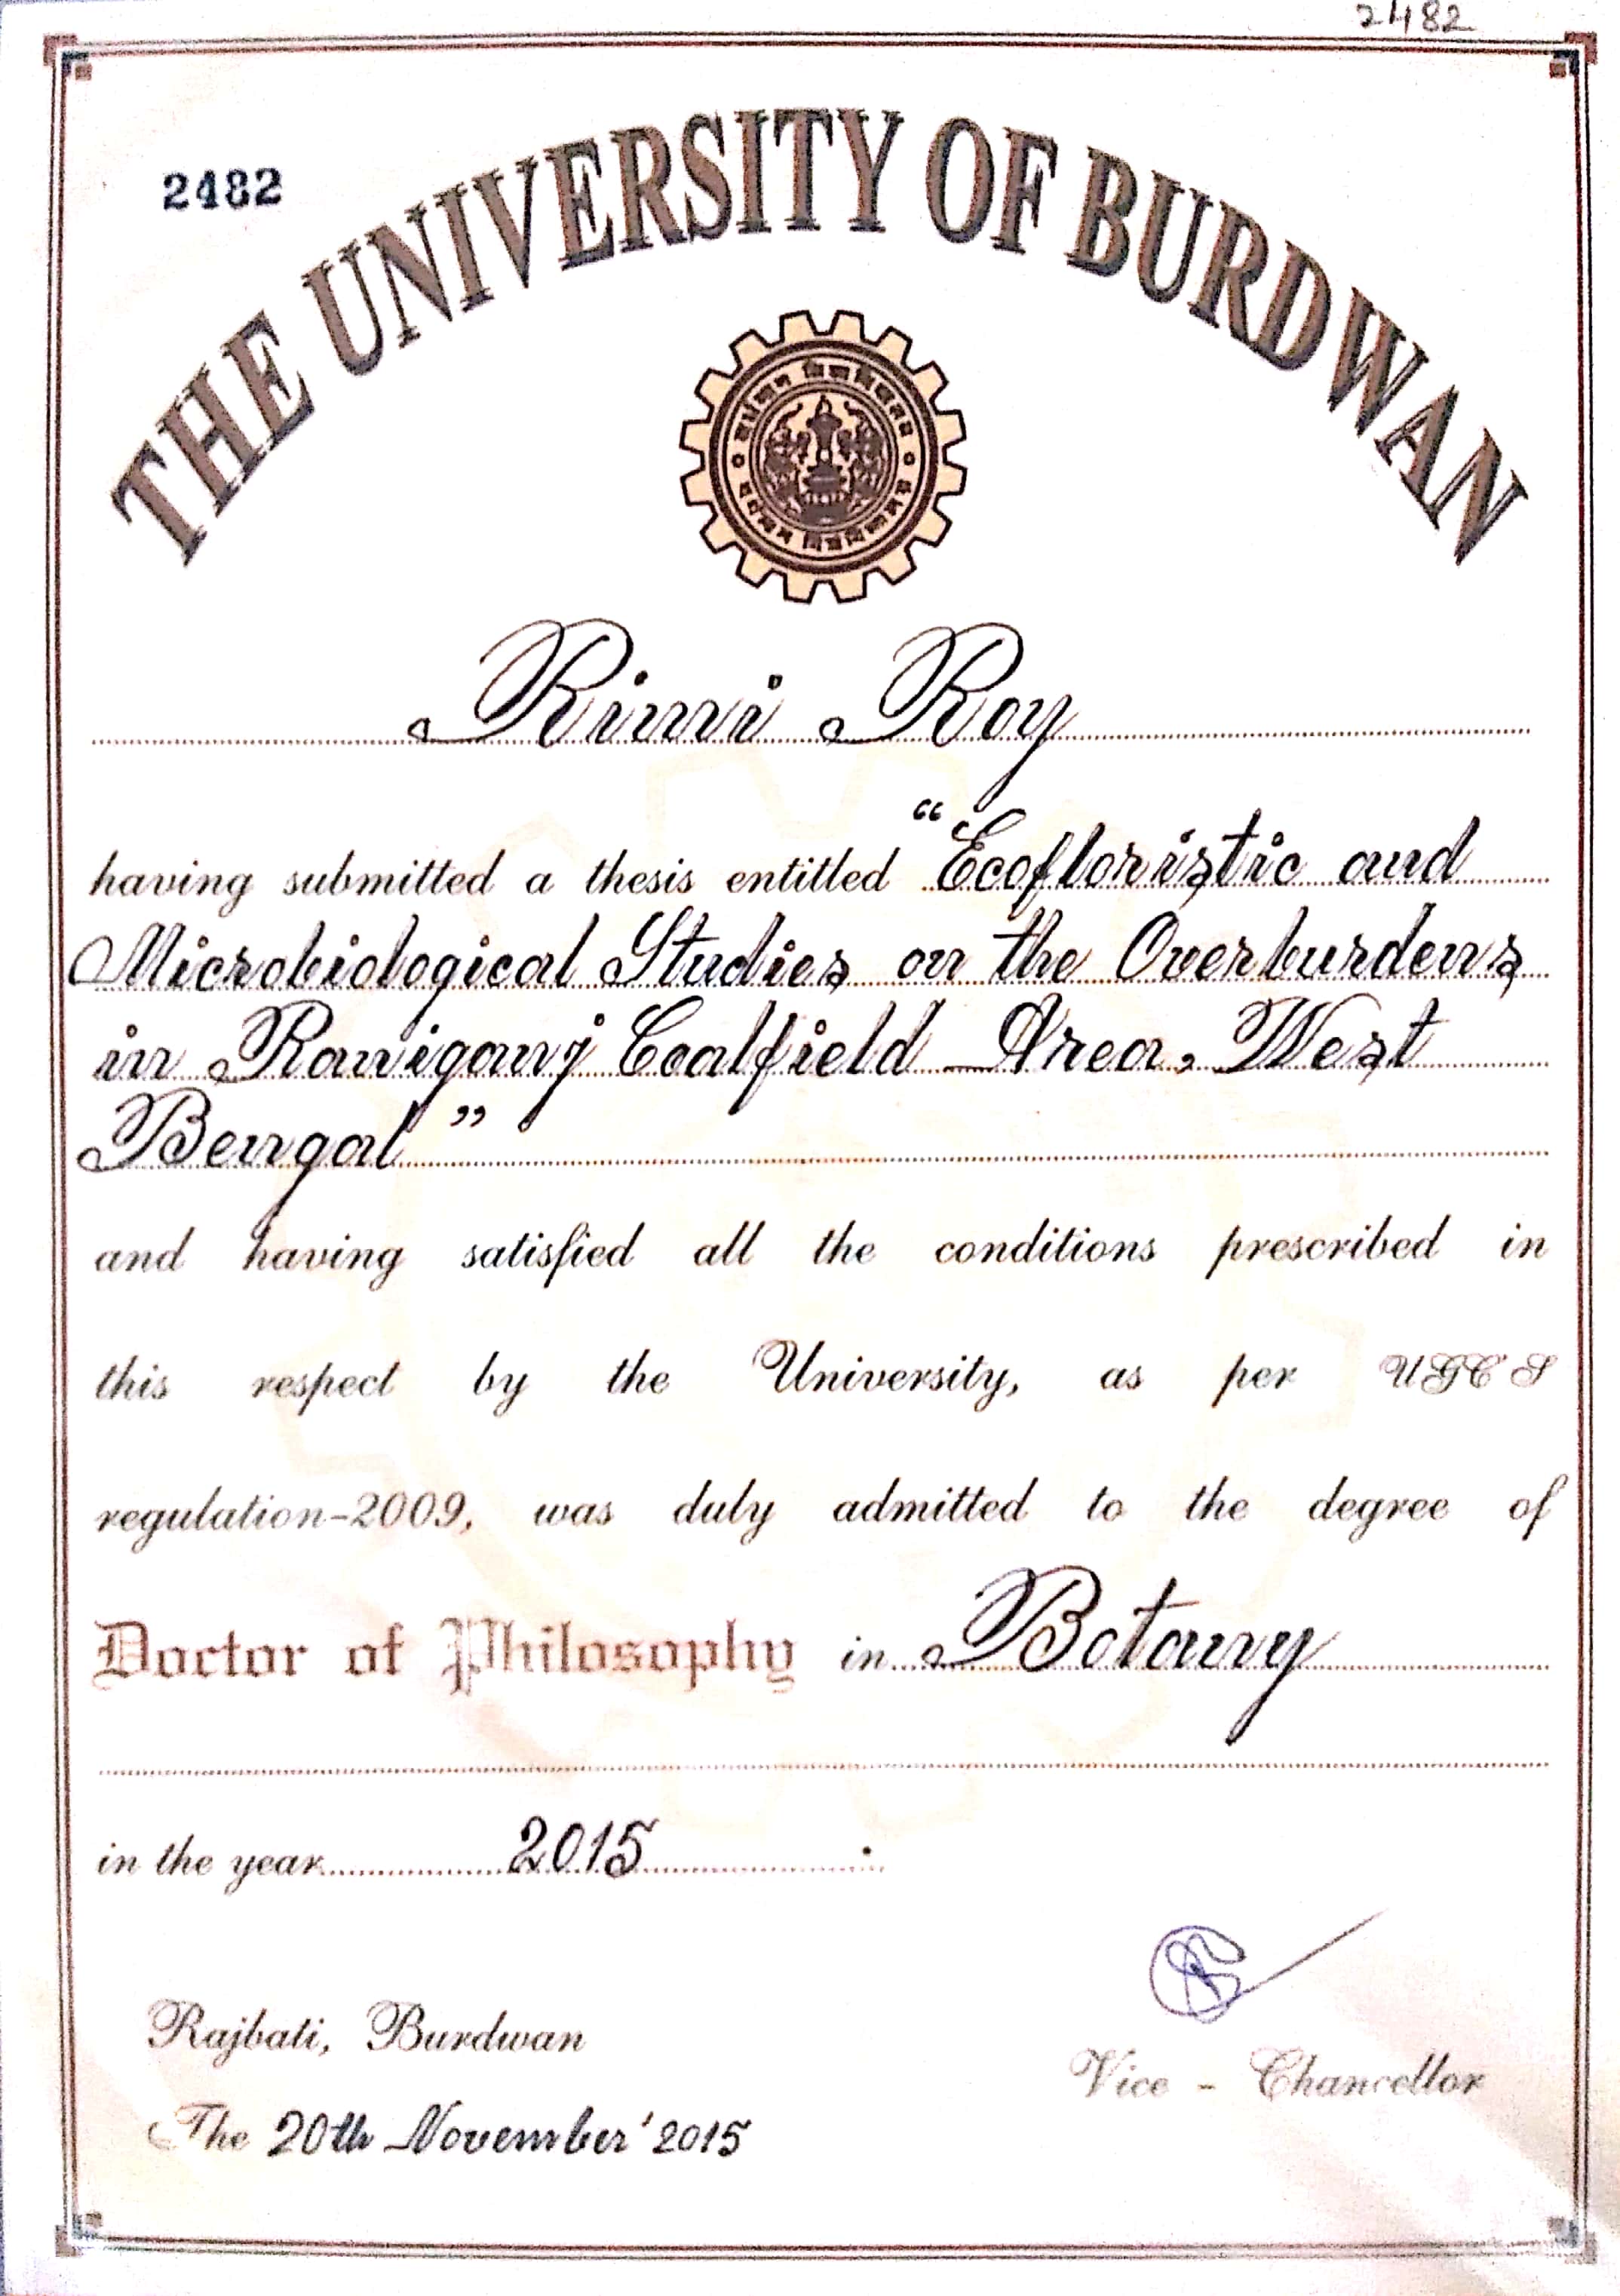 2482
2482
THE UNIVERSITY OF BURDWAN
Rimi Roy
having submitted a thesis entitled "Ecofloristic and
Microbiological Studies on the Overburdens
in Raniganj Coalfield Area, West
Bengal"
and having satisfied all the conditions prescribed in
this respect by the University, as per UGC'S
regulation-2009, was duly admitted to the degree of
Doctor of Philosophy in Botany
in the year 2015
Rajbati, Burdwan
Vice - Chancellor
The 20th November' 2015